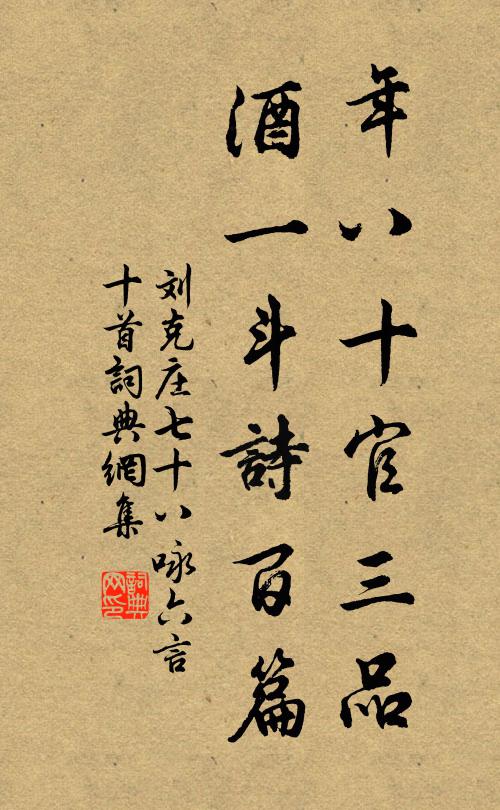 年八十官三品
酒一斗詩百篇
刘克庄七十八咏六言
十首詞典網集
詞典
网印